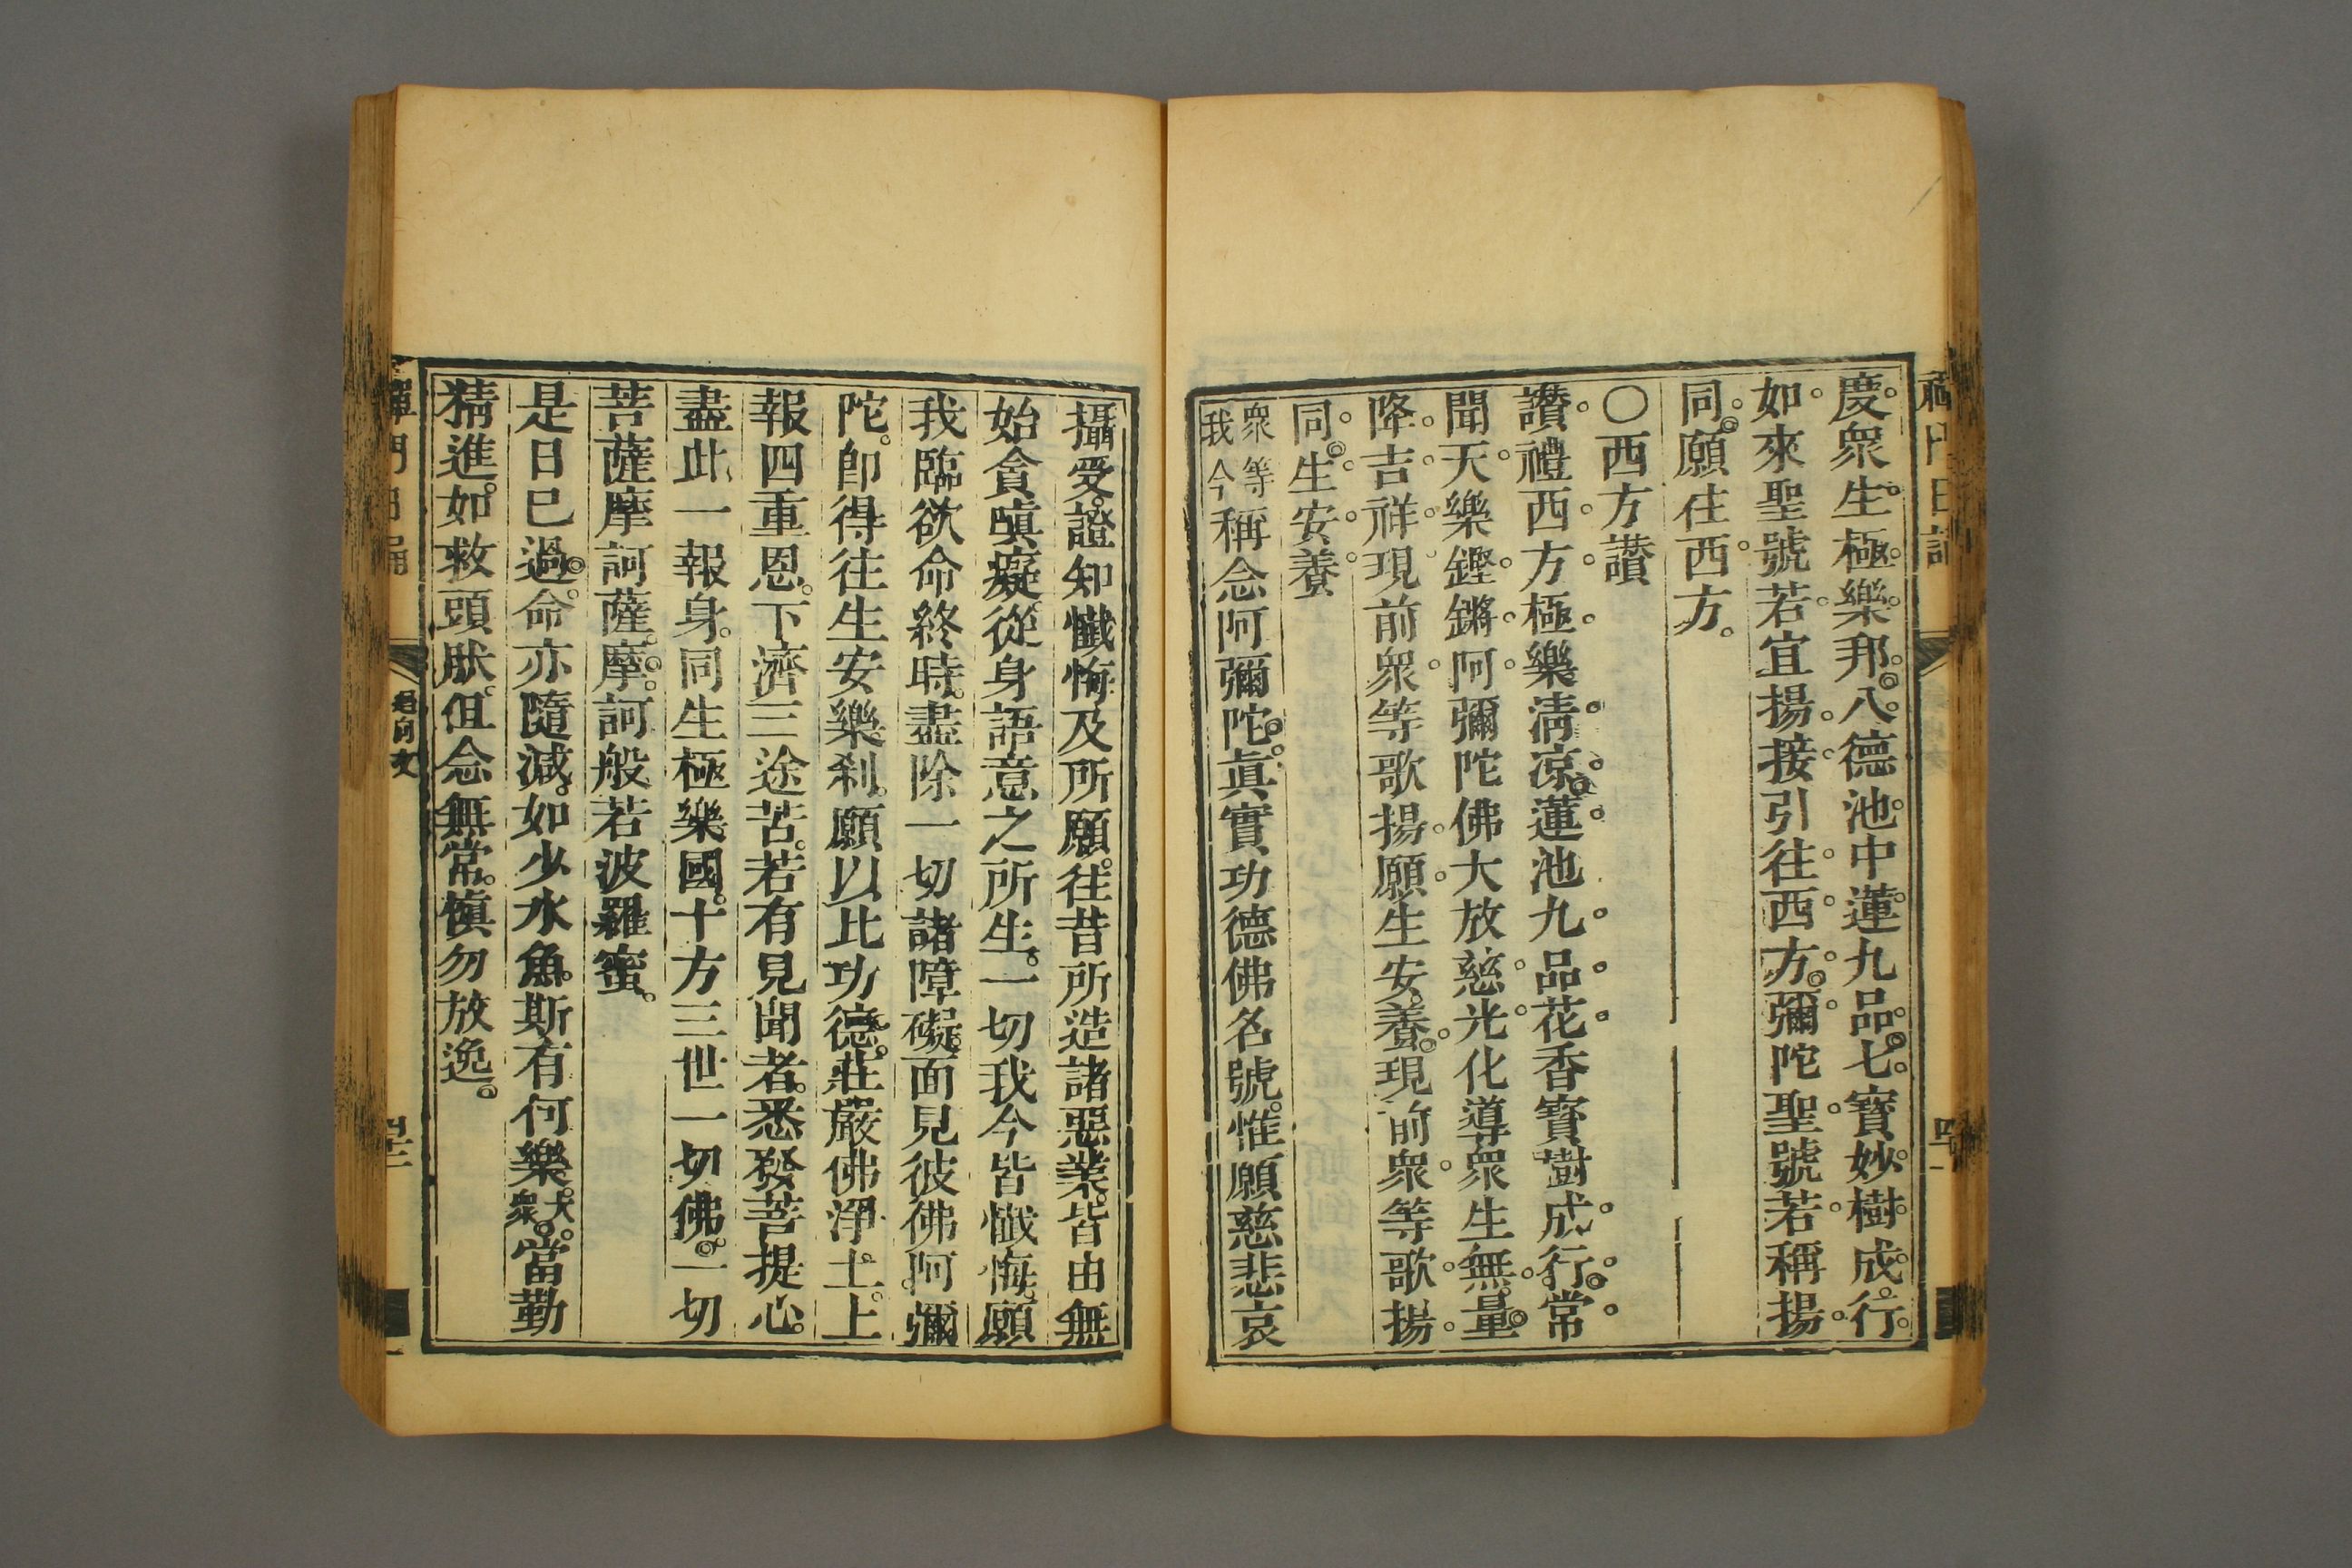 慶衆生極樂邦八德池中蓮九品七寶妙樹成行
如來聖號若宣揚接引往西方彌陀聖號若稱揚
同願往西方
〇西方讚
讚禮西方極樂清涼蓮池九品花香寶樹成行常
聞天樂鏗鏘阿彌陀佛大放慈光化導衆生無量
降吉祥現前衆等歌揚願生安養現前衆等歌揚
同生安養
衆等我今稱念阿彌陀眞實功德佛名號惟願慈悲哀
攝受證知懺悔及所願往昔所造諸惡業皆由無
始貪嗔癡從身語意之所生一切我今皆懺悔願
我臨欲命終時盡除一切諸障礙面見彼佛阿彌
陀卽得往生安樂刹願以此功德莊嚴佛淨土上
報四重恩下濟三途苦若有見聞者悉發菩提心
盡此一報身同生極樂國十方三世一切佛一切
菩薩摩訶薩摩訶般若波羅蜜
是日已過命亦隨減如少水魚斯有何樂大衆當勤
精進如救頭肰但念無常愼勿放逸
禪門日誦
囘向文